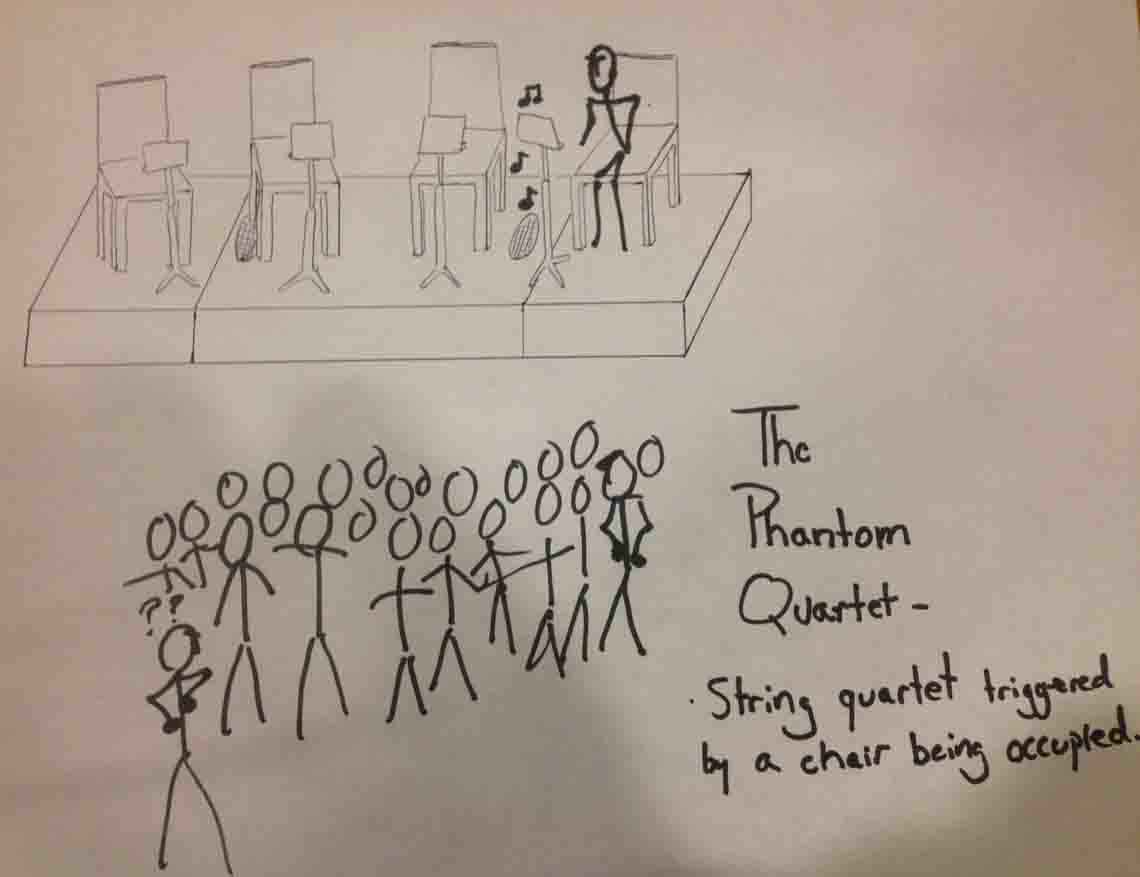 ??
The
Phantom
Quartet -
· String quartet triggered
by a chair being occupied.